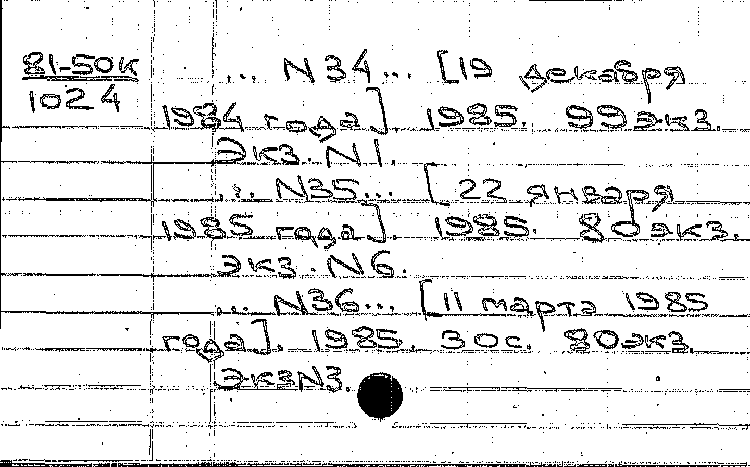 81-50к
1024
... N34... [19 декабря
1984 года]. 1985. 99экз.
Экз. N1.
... N35... [22 января
1985 года]. 1985. 80экз.
Экз. N6.
... N36... [11 марта 1985
года]. 1985. 30с. 80экз.
ЭкзN3.